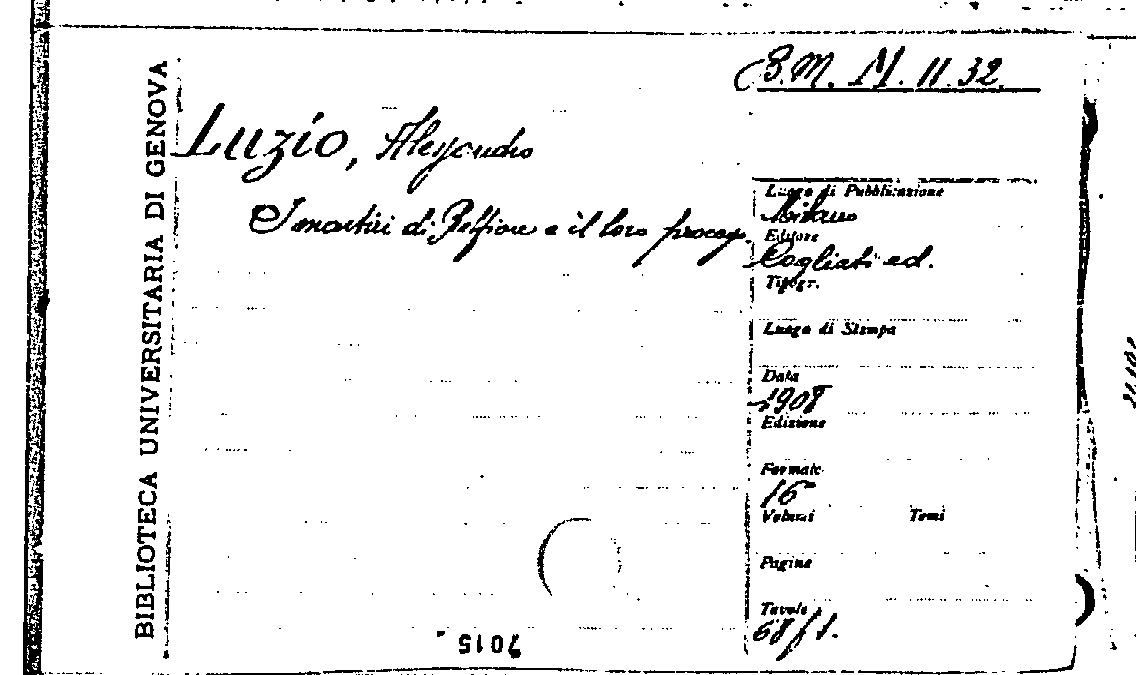 BIBLIOTECA UNIVERSITARIA DI GENOVA
S.M. M. 11.32
Luzio, Alessandro
I martiri di Belfiore e il loro process.
Luogo di Pubblicazione
Milano
Editore
Cogliati ed.
Tipogr.
Luogo di Stampa
Data
1908
Edizione
Formato
16
Volumi Tomi
Pagine
Tavole
7015.